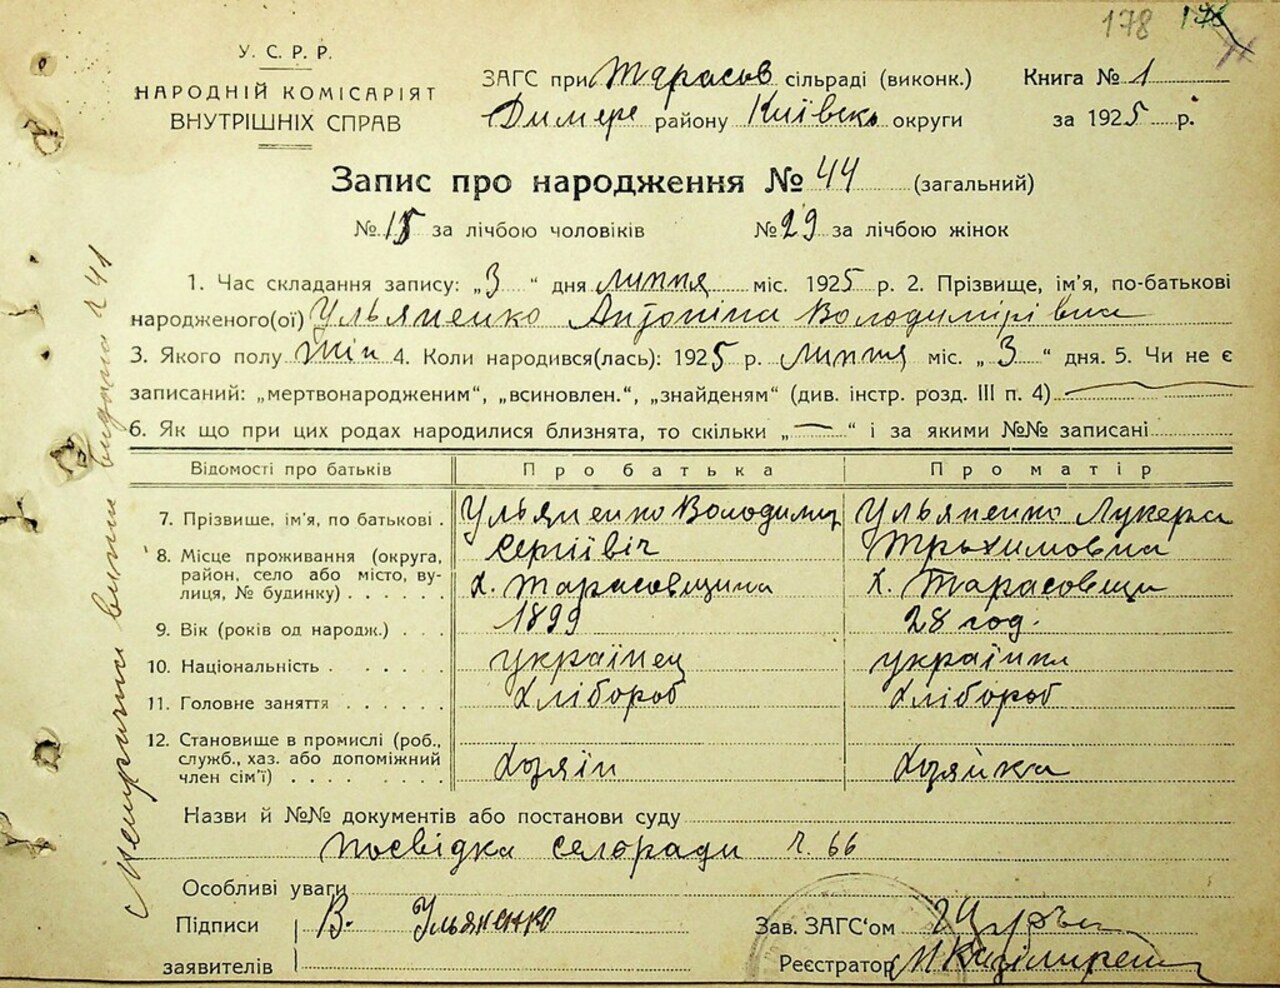 178
У. С. Р. Р.
НАРОДНІЙ КОМІСАРІЯТ
ВНУТРІШНІХ СПРАВ
ЗАГС при Тарасов сільраді (виконк.)
Димере району Київсько округи
Книга № 1
за 1925 р.
Запис про народження № 44 (загальний)
№ 15 за лічбою чоловіків № 29 за лічбою жінок
1. Час складання запису: „3“ дня липня міс. 1925 р. 2. Прізвище, ім'я, по-батькові
народженого(ої) Ульяненко Антоніна Володимірівна
3. Якого полу Жін 4. Коли народився(лась): 1925 р. липня міс. „3“ дня. 5. Чи не є
записаний: „мертвонародженим“, „всиновлен.“, „знайденям“ (див. інстр. розд. III п. 4)
6. Як що при цих родах народилися близнята, то скільки „—“ і за якими №№ записані
Відомості про батьків Про батька Про матір
7. Прізвище, ім'я, по батькові . Ульяненко Володимир Ульяненко Лукера
Сергіівіч Трохимовна
8. Місце проживання (округа,
район, село або місто, ву-
лиця, № будинку) . . . . . . х. Тарасовщина х. Тарасовщи
9. Вік (років од народж.) . . . 1899 28 год.
10. Національність . . . . . українец українка
11. Головне заняття . . . . . . хлібороб хлібороб
12. Становище в промислі (роб.,
служб., хаз. або допоміжний
член сім'ї) . . . . . . . . хозяін хозяйка
Назви й №№ документів або постанови суду
посвідка селоради ч. 66
Особливі уваги
Підписи В. Ульяненко
заявителів
Зав. ЗАГС'ом
Реєстратор
Метричний витяг видана 241